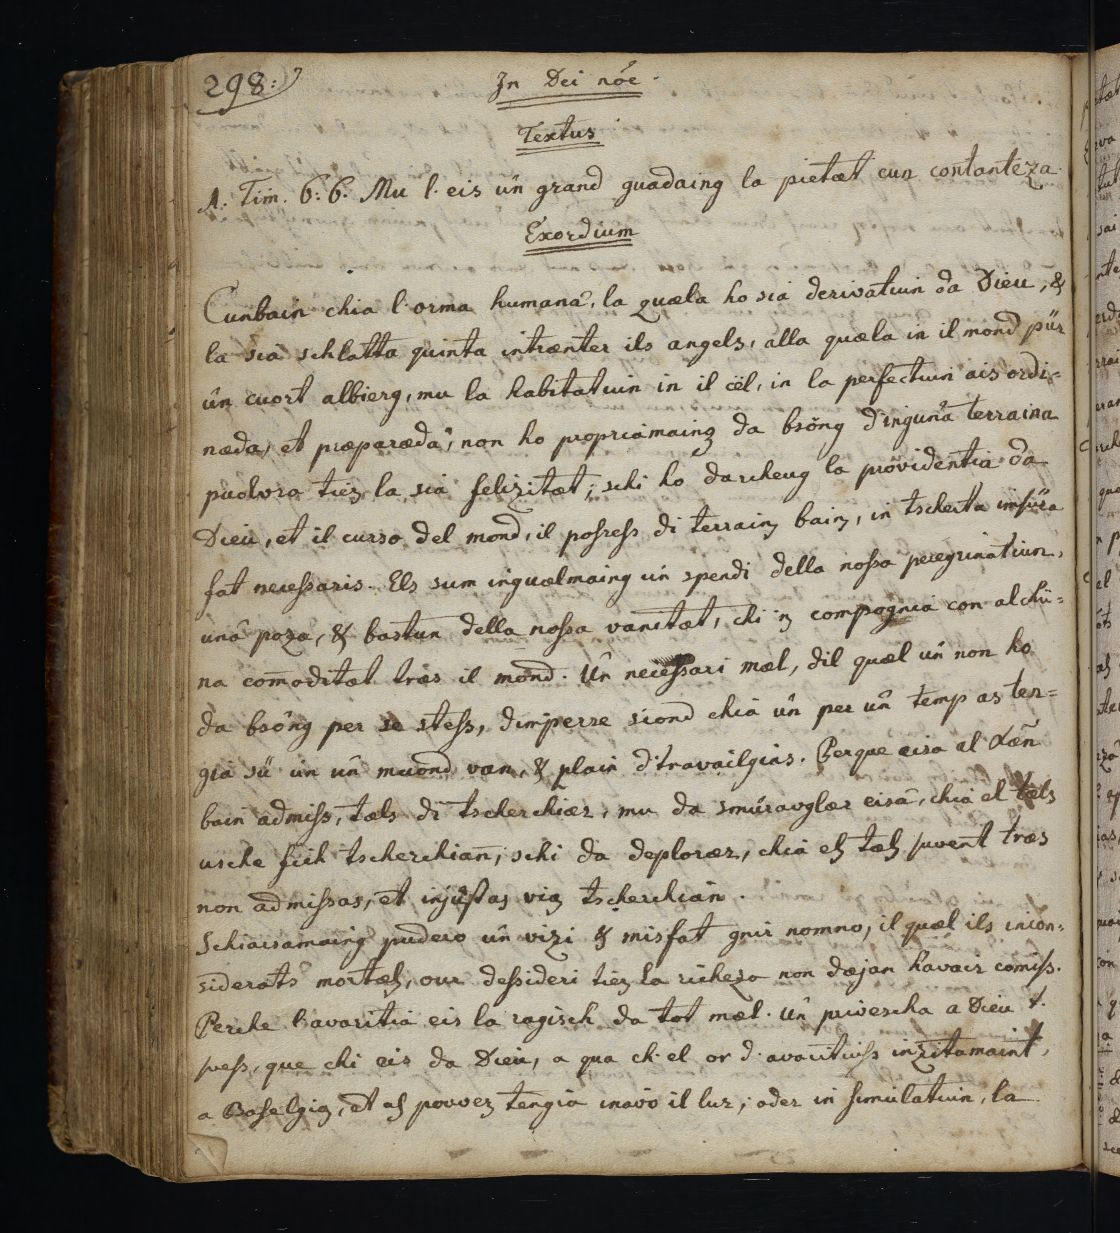 298:
In Dei nõe.
Textus
1. Tim. 6: 6. Mu l'eis ün grand guadaing la pietæt cun contanteza
Exordium
Cunbain chia l'orma humana, la quæla ho sia derivatiun da Dieu, &
la sia schlatta quinta intrænter ils angels, alla quæla in il mond pür
ün cuort albierg, mu la habitatiun in il cël, in la perfectiun ais ordi-
næda, et præparæda, non ho propriamaing da bsöng d'inguna terraina
puolvra tiers la sia felizitæt; schi ho darcheug la providentia da
Dieu, et il curso del mond, il possess di terrains bains, in tscherta impüra
fat necessaris. Els sum inguælmaing ün spendi della nossa peregrinatiun,
una poza, & bastun della nossa vanitæt, chi ns compognia con alchü-
na comoditæt træs il mond. Ün necessari mæl, dil quæl ün non ho
da bsöng per se stess, dimperse siond chia ün per ün temp as ten-
gia sü in ün muond van, & plain d'travailgias. Perque eisa al
bain admiss, tæls di tscherchiær, mu da smüravglær eisa, chia el tæls
usche fich tscherchian; schi da deplorær, chia els tæls suvent træs
non admissas, et injustas vias tscherchian.
Schiarsamaing pudero ün vizi & misfat gnir nomno, il quæl ils incon-
siderats mortæls, our dessideri tiers la richeza non dæjan havair comiss.
Perche l'avaritia eis la ragisch da tot mæl. Ün privescha a Dieu
spess, que chi eis da Dieu, a qua ch'el or d'avaritiuss inzitamaint,
a Baselgias, et als povvers tengia inavo il lur; oder in simulatiun, la